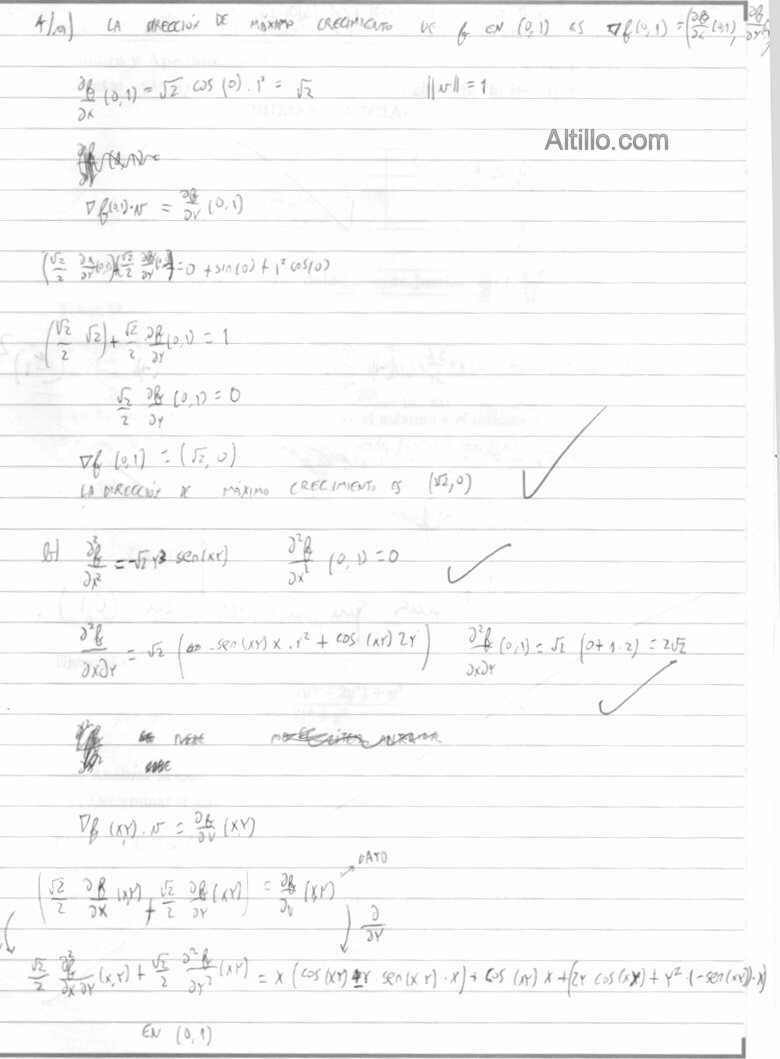 4/a) LA DIRECCIÓN DE MÁXIMO CRECIMIENTO DE f EN (0,1) ES ∇f(0,1) = (∂f/∂x (0,1), ∂f/∂y
∂f/∂x (0,1) = √2 cos(0) · 1² = √2    ||v|| = 1
Altillo.com
∇f(0,1)·v = ∂f/∂v (0,1)
= 0 + sin(0) + 1² cos(0)
(√2/2 √2) + √2/2 ∂f/∂y (0,1) = 1
√2/2 ∂f/∂y (0,1) = 0
∇f (0,1) = (√2, 0)
LA DIRECCIÓN DE MÁXIMO CRECIMIENTO ES (√2,0)
b) ∂²f/∂x² = -√2 y³ sen(xy)    ∂²f/∂x² (0,1) = 0
∂²f/∂x∂y = √2 (-sen(xy) x · y² + cos(xy) 2y)    ∂²f/∂x∂y (0,1) = √2 (0+1·2) = 2√2
∇f (xy) · v = ∂f/∂v (xy)
DATO
(√2/2 ∂f/∂x (x,y) + √2/2 ∂f/∂y (xy)) = ∂f/∂v (x,y)    ∂/∂y
√2/2 ∂²f/∂x∂y (x,y) + √2/2 ∂²f/∂y² (xy) = x (cos(xy) sen(xy) · x) + cos(xy) x + (2y cos(xy) + y² · (-sen(xy)) · x)
EN (0,1)